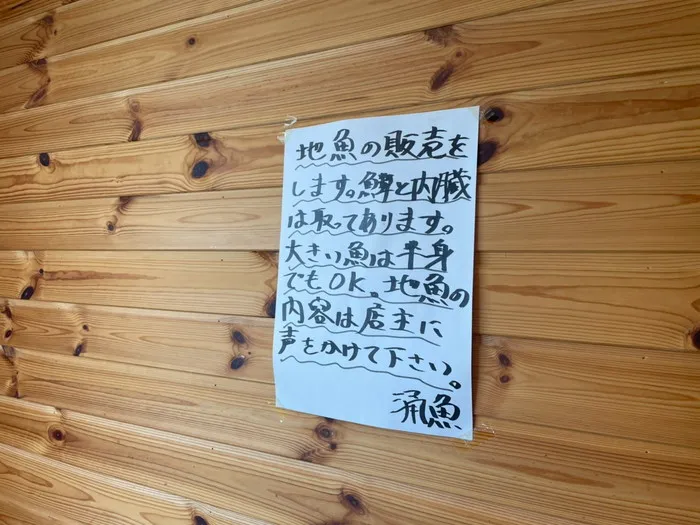 地魚の販売を
します。鱗と内臓
は取ってあります。
大きい魚は半身
でもOK、地魚の
内容は店主に
声をかけて下さい。
涌魚